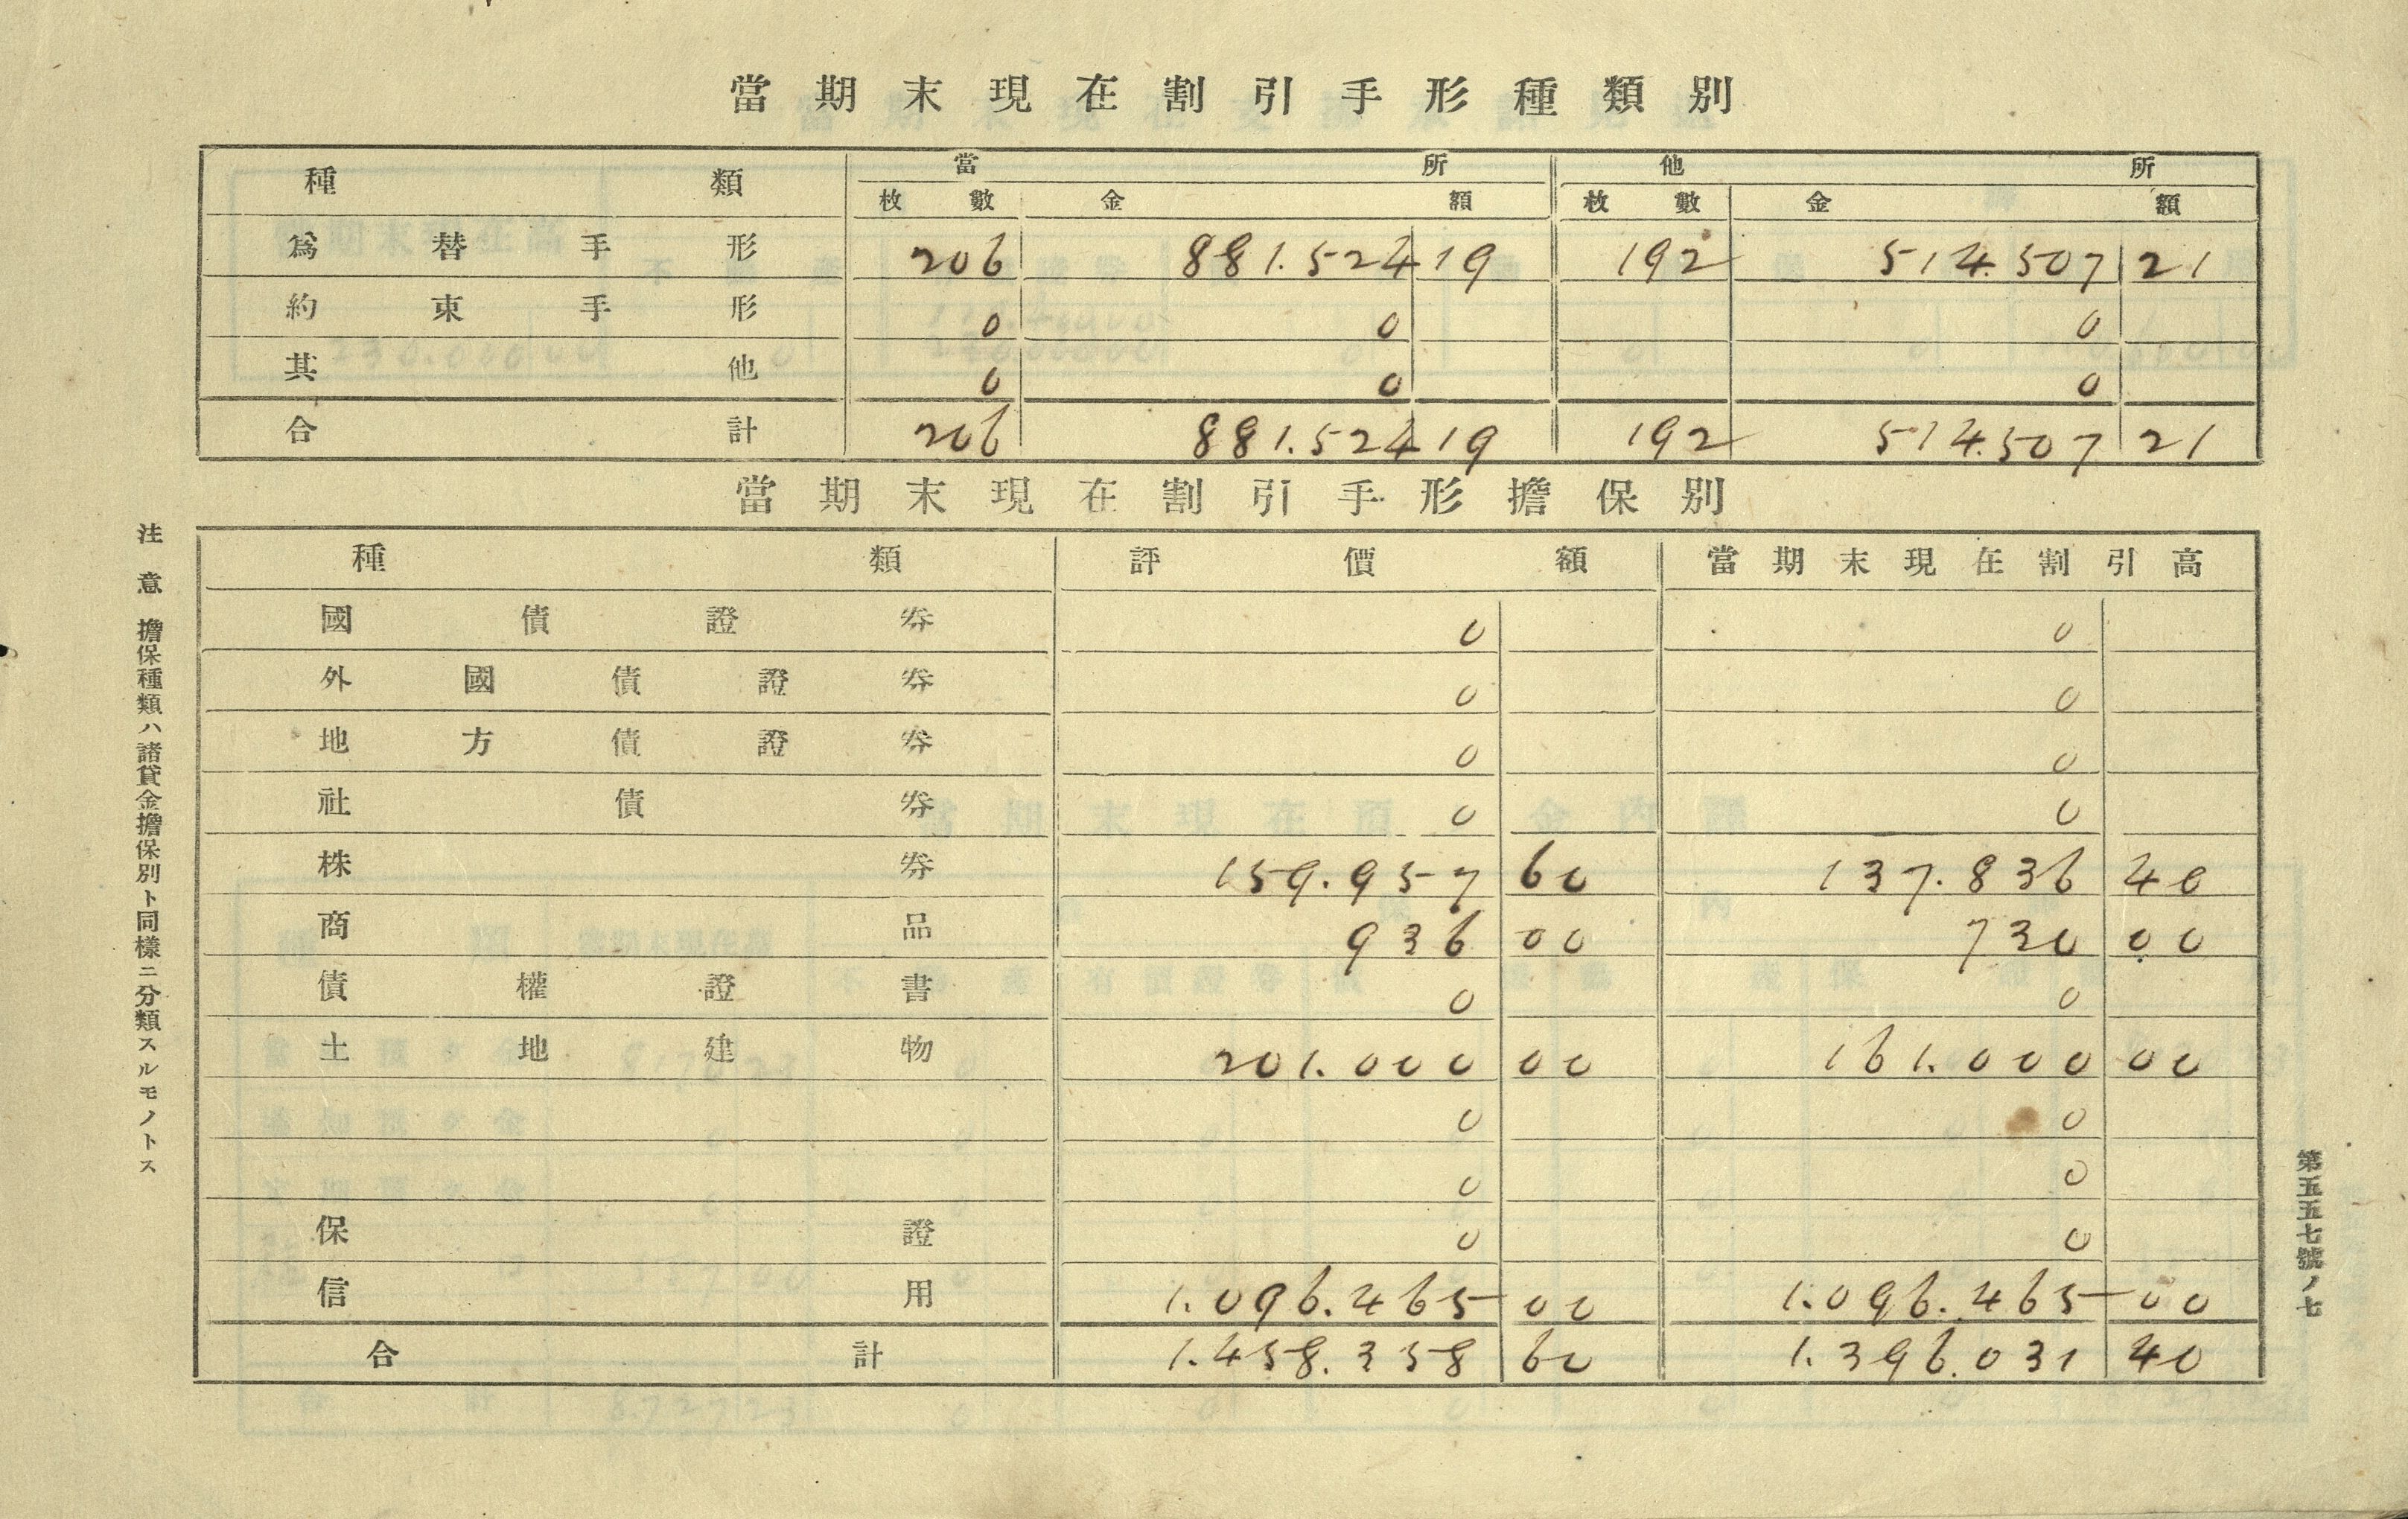 當期末現在割引手形種類別
種類 當所 他所
枚數 金額 枚數 金額
爲替手形 206 881.524 19 192 514.507 21
約束手形 0 0 0
其他 0 0 0
合計 206 881.524 19 192 514.507 21
當期末現在割引手形擔保別
種類 評價額 當期末現在割引高
國債證券 0 0
外國債證券 0 0
地方債證券 0 0
社債券 0 0
株券 159.957 60 137.836 40
商品 936 00 730 00
債權證書 0 0
土地建物 201.000 00 161.000 00
0 0
0 0
保證 0 0
信用 1.096.465 00 1.096.465 00
合計 1.458.358 60 1.396.031 40
注意 擔保種類ハ諸貸金擔保別ト同樣ニ分類スルモノトス
第五五七號ノ七